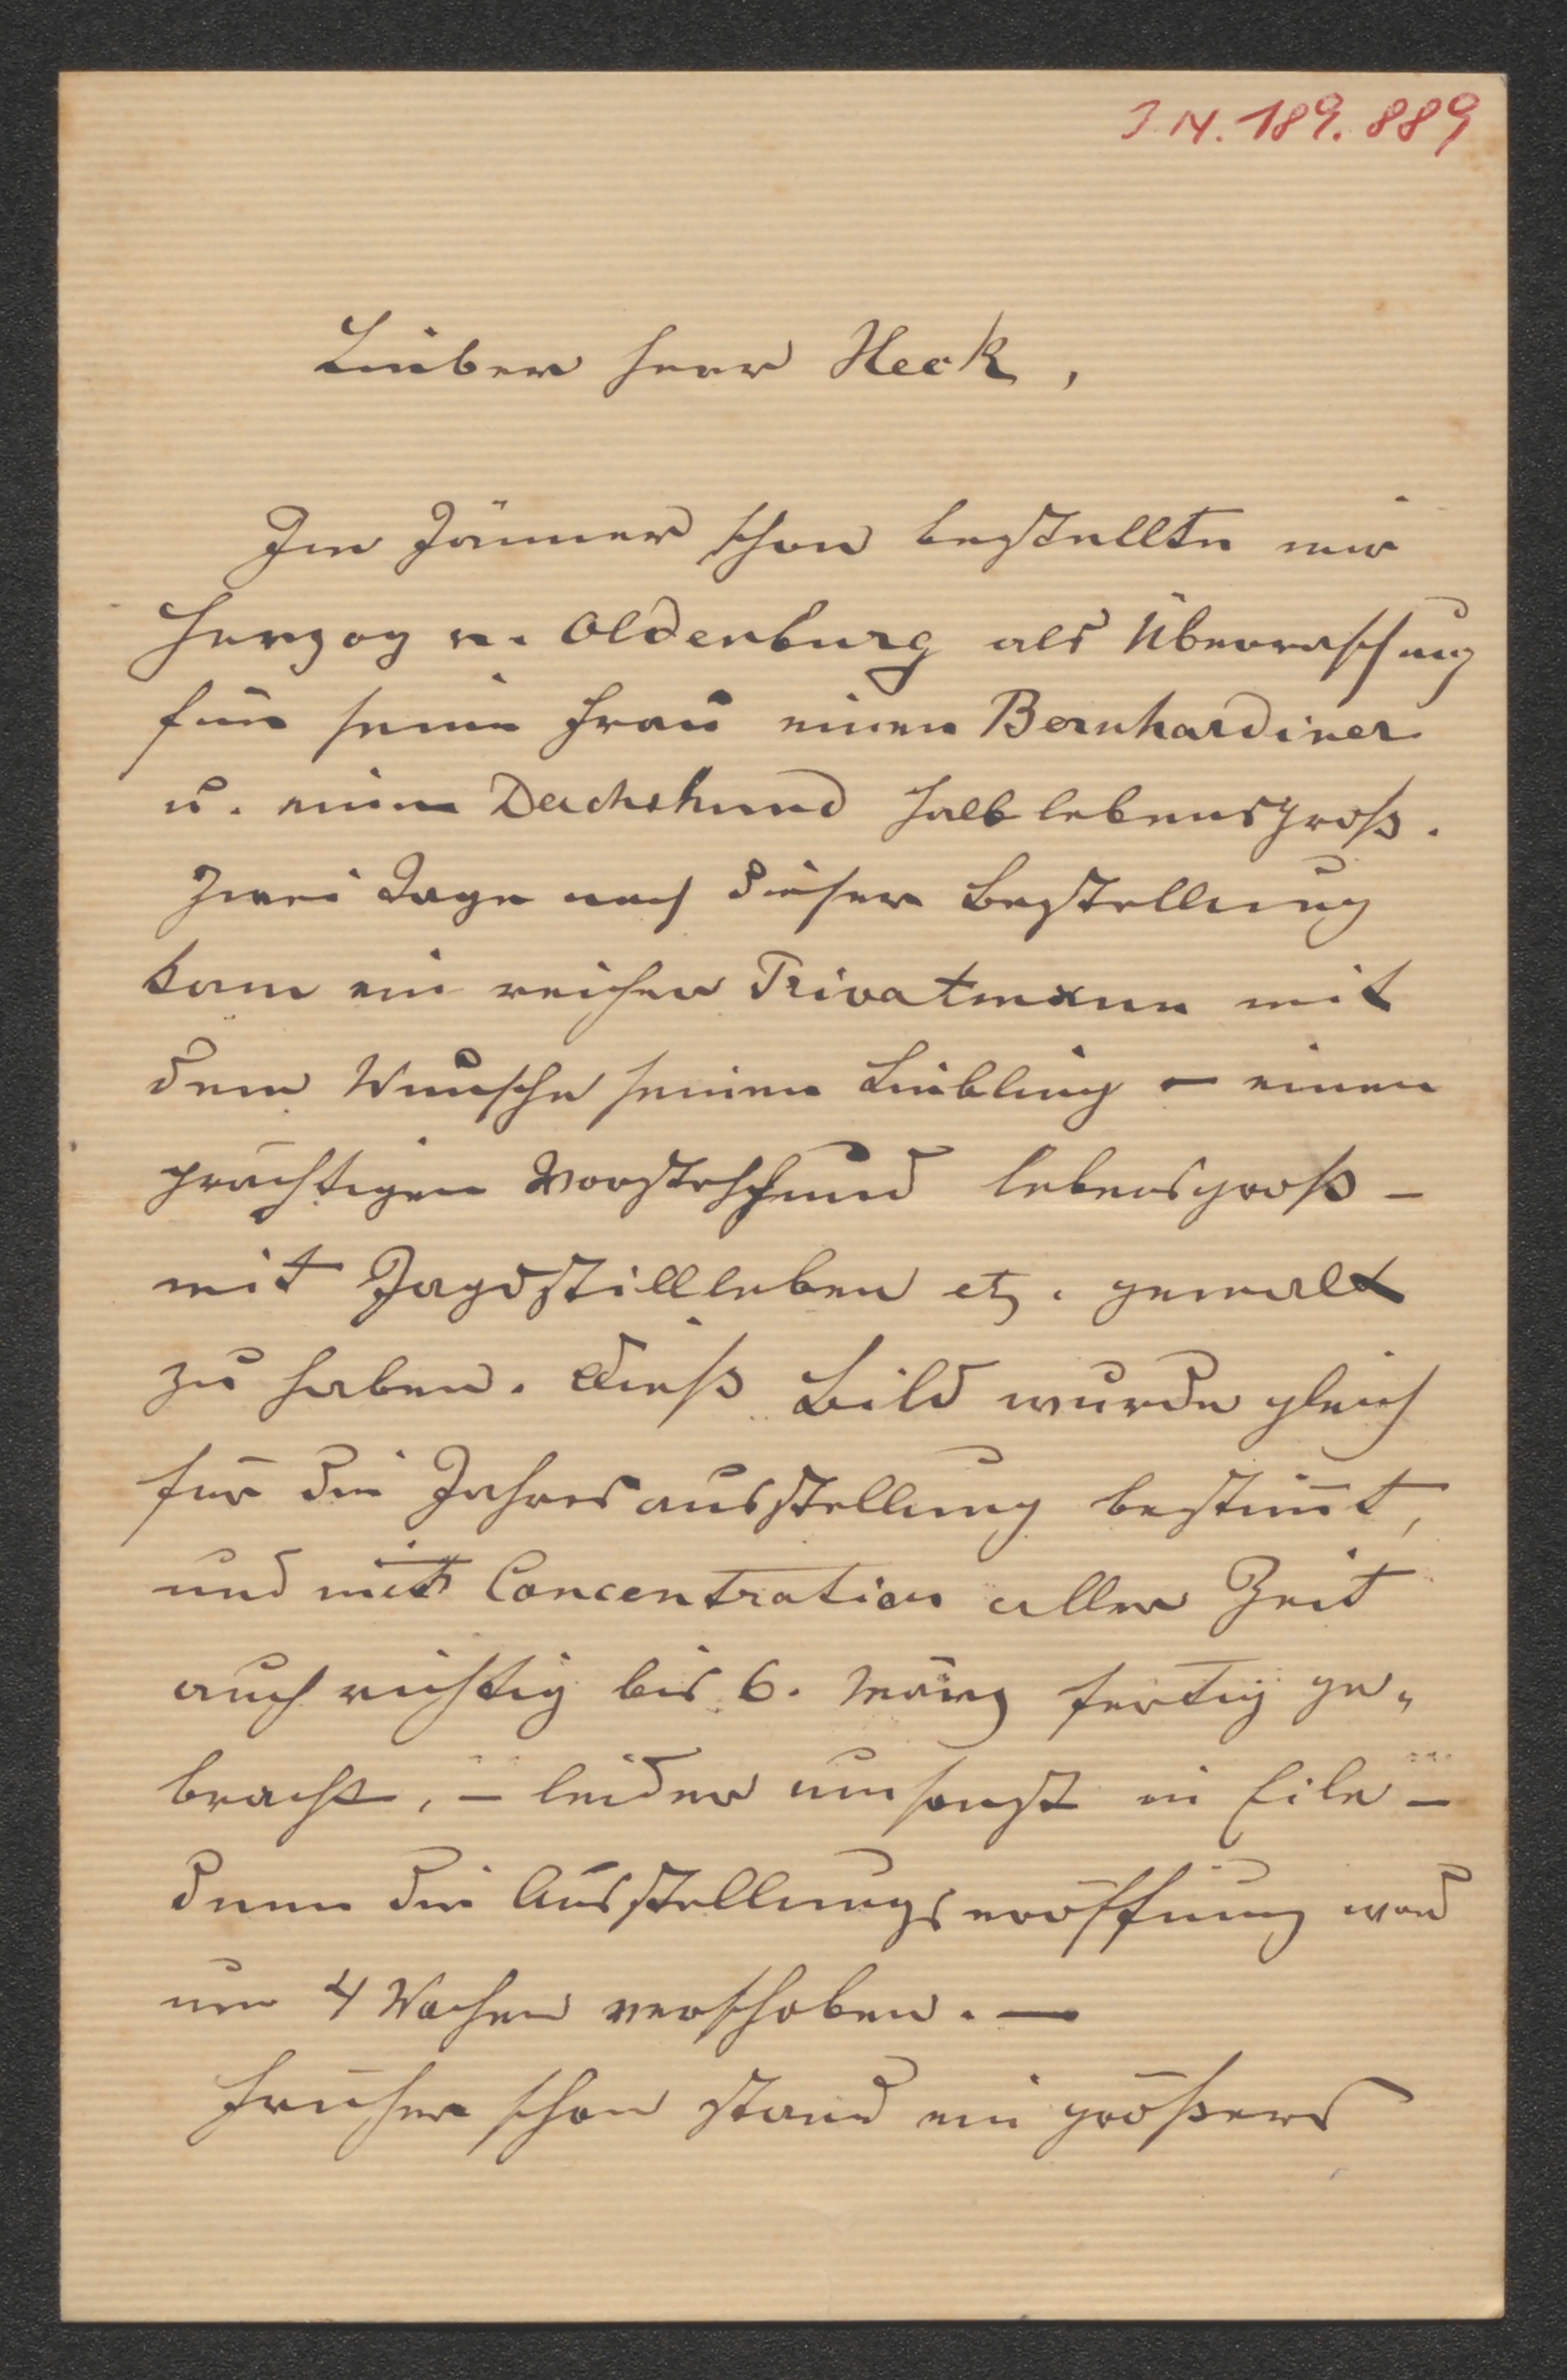 I. N. 189.889
Lieber Herr Heck,
Im Jänner schon bestellte mir
Herzog v. Oldenburg als Überraschung
für seine Frau einen Bernhardiner
u. einen Dachshund halb lebensgroß.
Zwei Tage nach dieser Bestellung
kam ein reicher Privatmann mit
dem Wunsche seinen Liebling – einen
prächtigen Vorstehhund lebensgroß –
mit Jagdstillleben etz. gemalt
zu haben. Dieß Bild wurde gleich
für die Jahresausstellung bestim̄t,
und mit Concentration aller Zeit
auch richtig bis 6. März fertig ge„
bracht, – leider umsonst in Eile –
denn die Ausstellungseröffnung ward
um 4 Wochen verschoben. —
Früher schon stand ein größeres